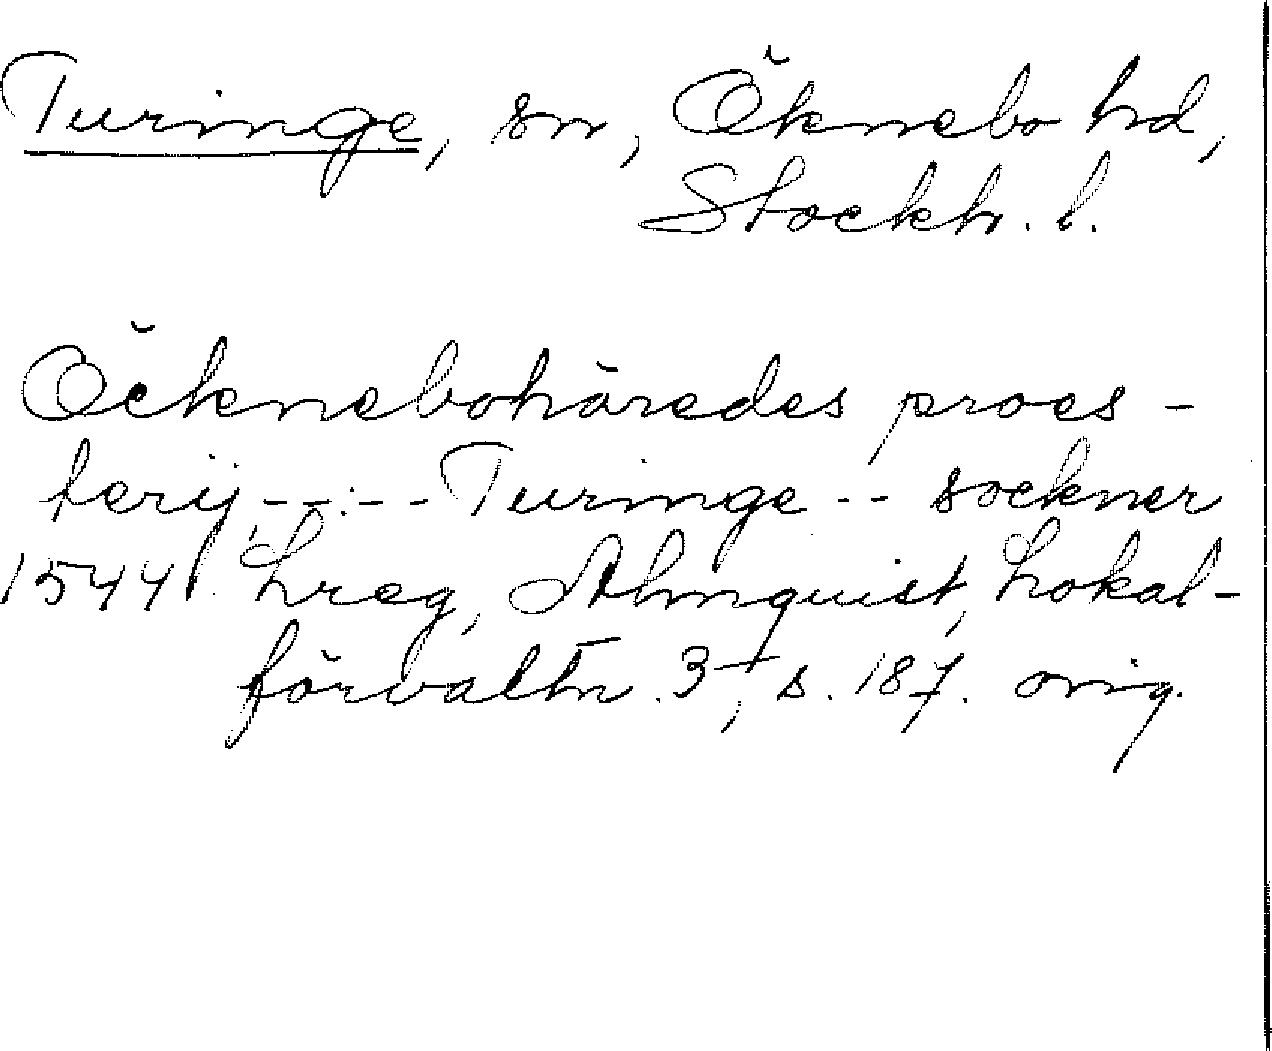 Turinge, sn, Öknebo hd,
Stockh. l.
Öcknebohäredes proes-
terij, --:-- Turinge -- sockner
1544. Lreg, Almquist, Lokal-
förvaltn. 3, s. 187. orig.